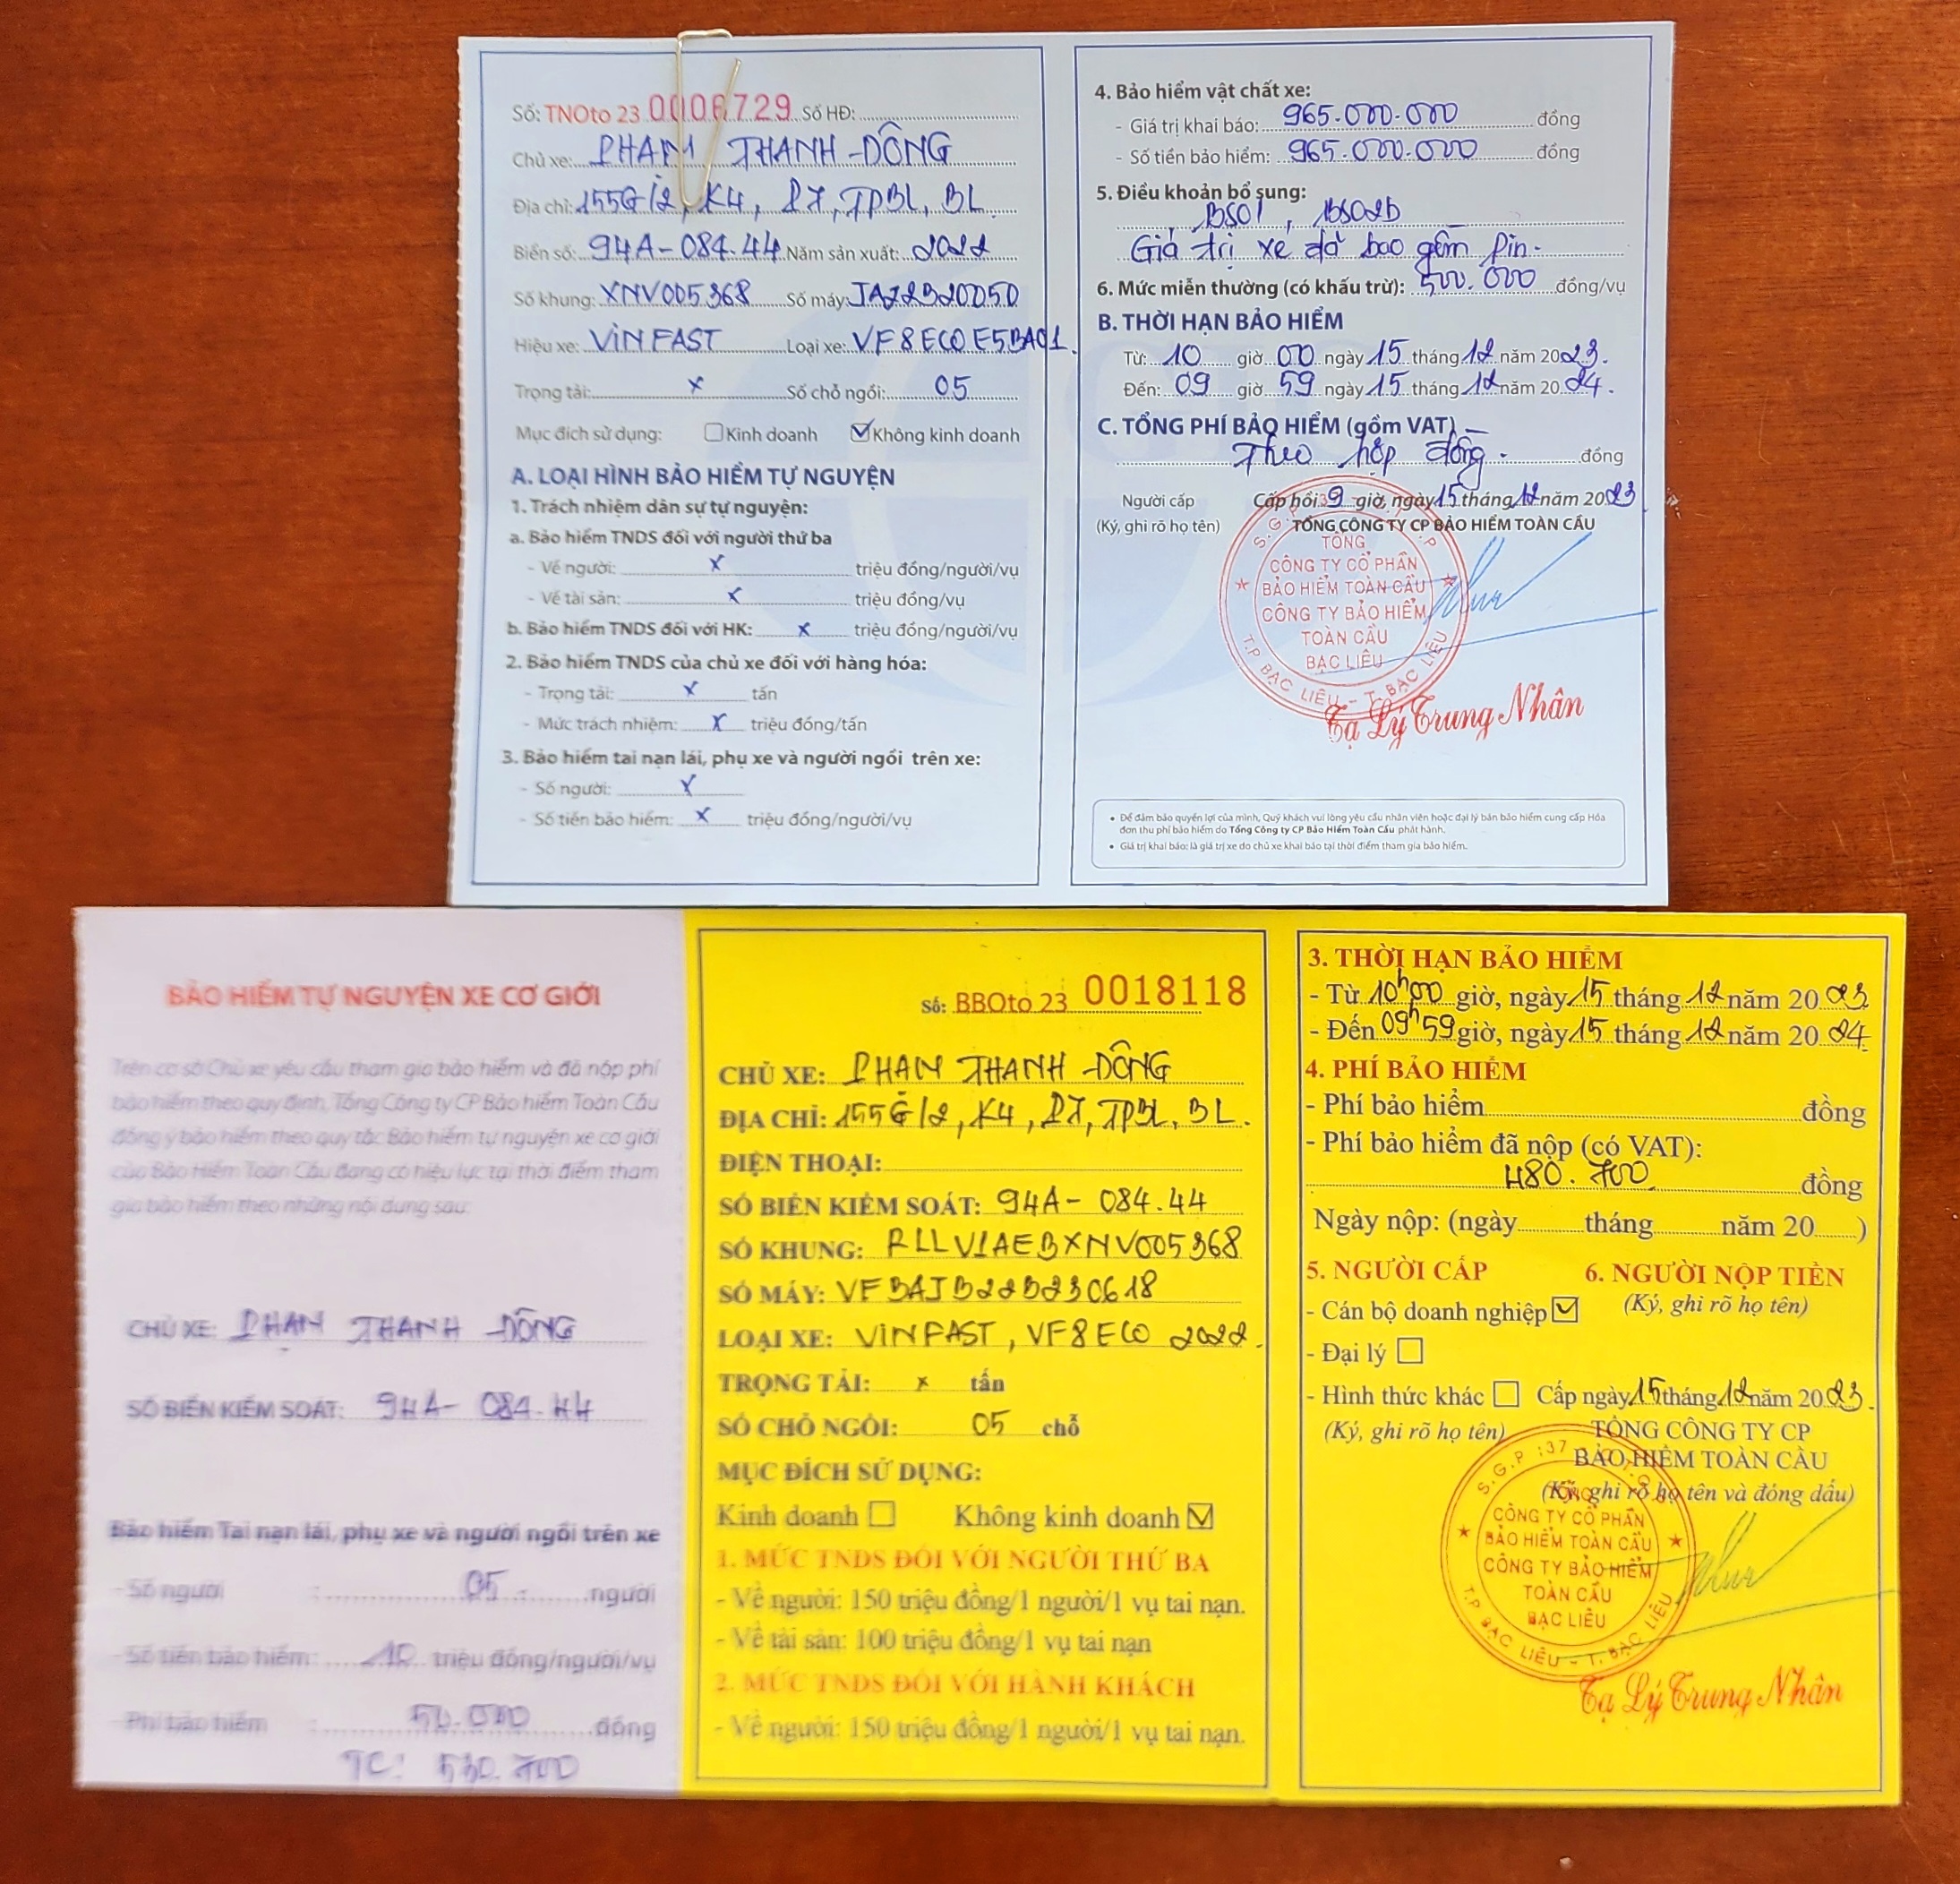 Số: TNOto 23 0006729 Số HĐ:
Chủ xe: PHAN THANH ĐỒNG
Địa chỉ: 155G/2, K4, P7, TPBL, BL
Biển số: 94A-084.44 Năm sản xuất: 2022
Số khung: XNV005368 Số máy: JA22B20050
Hiệu xe: VINFAST Loại xe: VF8ECO E5BA01.
Trọng tải: x Số chỗ ngồi: 05
Mục đích sử dụng: Kinh doanh Không kinh doanh
A. LOẠI HÌNH BẢO HIỂM TỰ NGUYỆN
1. Trách nhiệm dân sự tự nguyện:
a. Bảo hiểm TNDS đối với người thứ ba
- Về người: x triệu đồng/người/vụ
- Về tài sản: x triệu đồng/vụ
b. Bảo hiểm TNDS đối với HK: x triệu đồng/người/vụ
2. Bảo hiểm TNDS của chủ xe đối với hàng hóa:
- Trọng tải: x tấn
- Mức trách nhiệm: x triệu đồng/tấn
3. Bảo hiểm tai nạn lái, phụ xe và người ngồi trên xe:
- Số người: x
- Số tiền bảo hiểm: x triệu đồng/người/vụ
4. Bảo hiểm vật chất xe:
- Giá trị khai báo: 965.000.000 đồng
- Số tiền bảo hiểm: 965.000.000 đồng
5. Điều khoản bổ sung:
BS01, BS02b
Giá trị xe đã bao gồm Pin.
6. Mức miễn thường (có khấu trừ): 500.000 đồng/vụ
B. THỜI HẠN BẢO HIỂM
Từ: 10 giờ 00 ngày 15 tháng 12 năm 2023.
Đến: 09 giờ 59 ngày 15 tháng 12 năm 2024.
C. TỔNG PHÍ BẢO HIỂM (gồm VAT)
Theo hợp đồng. đồng
Người cấp Cấp hồi 9 giờ, ngày 15 tháng 12 năm 2023
(Ký, ghi rõ họ tên) TỔNG CÔNG TY CP BẢO HIỂM TOÀN CẦU
TỔNG
CÔNG TY CỔ PHẦN
BẢO HIỂM TOÀN CẦU
CÔNG TY BẢO HIỂM
TOÀN CẦU
BẠC LIÊU
T.P BẠC LIÊU - T. BẠC LIÊU
Tạ Lý Trung Nhân
• Để đảm bảo quyền lợi của mình, Quý khách vui lòng yêu cầu nhân viên hoặc đại lý bán bảo hiểm cung cấp Hóa
đơn thu phí bảo hiểm do Tổng Công ty CP Bảo Hiểm Toàn Cầu phát hành.
• Giá trị khai báo: là giá trị xe do chủ xe khai báo tại thời điểm tham gia bảo hiểm.
BẢO HIỂM TỰ NGUYỆN XE CƠ GIỚI
Trên cơ sở Chủ xe yêu cầu tham gia bảo hiểm và đã nộp phí
bảo hiểm theo quy định, Tổng Công ty CP Bảo hiểm Toàn Cầu
đồng ý bảo hiểm theo quy tắc Bảo hiểm tự nguyện xe cơ giới
của Bảo Hiểm Toàn Cầu đang có hiệu lực tại thời điểm tham
gia bảo hiểm theo những nội dung sau:
CHỦ XE: PHẠN THANH ĐỒNG
SỐ BIỂN KIỂM SOÁT: 94A- 084.44
Bảo hiểm Tai nạn lái, phụ xe và người ngồi trên xe
- Số người : 05 người
- Số tiền bảo hiểm: 10 triệu đồng/người/vụ
- Phí bảo hiểm : 50.000 đồng
TC: 530.700
Số: BBOto 23 0018118
CHỦ XE: PHAN THANH ĐỒNG
ĐỊA CHỈ: 155G/2, K4, P7, TPBL, BL.
ĐIỆN THOẠI:
SỐ BIỂN KIỂM SOÁT: 94A- 084.44
SỐ KHUNG: RLLV1AEBXNV005368
SỐ MÁY: VFBAJB22B230618
LOẠI XE: VINFAST, VF8ECO 2022.
TRỌNG TẢI: x tấn
SỐ CHỖ NGỒI: 05 chỗ
MỤC ĐÍCH SỬ DỤNG:
Kinh doanh Không kinh doanh
1. MỨC TNDS ĐỐI VỚI NGƯỜI THỨ BA
- Về người: 150 triệu đồng/1 người/1 vụ tai nạn.
- Về tài sản: 100 triệu đồng/1 vụ tai nạn
2. MỨC TNDS ĐỐI VỚI HÀNH KHÁCH
- Về người: 150 triệu đồng/1 người/1 vụ tai nạn.
3. THỜI HẠN BẢO HIỂM
- Từ 10h00 giờ, ngày 15 tháng 12 năm 2023
- Đến 09h59 giờ, ngày 15 tháng 12 năm 2024
4. PHÍ BẢO HIỂM
- Phí bảo hiểm đồng
- Phí bảo hiểm đã nộp (có VAT):
480.700 đồng
Ngày nộp: (ngày tháng năm 20 )
5. NGƯỜI CẤP 6. NGƯỜI NỘP TIỀN
- Cán bộ doanh nghiệp (Ký, ghi rõ họ tên)
- Đại lý
- Hình thức khác Cấp ngày 15 tháng 12 năm 2023.
(Ký, ghi rõ họ tên) TỔNG CÔNG TY CP
BẢO HIỂM TOÀN CẦU
(Ký, ghi rõ họ tên và đóng dấu)
CÔNG TY CỔ PHẦN
BẢO HIỂM TOÀN CẦU
CÔNG TY BẢO HIỂM
TOÀN CẦU
BẠC LIÊU
T.P BẠC LIÊU - T. BẠC LIÊU
Tạ Lý Trung Nhân